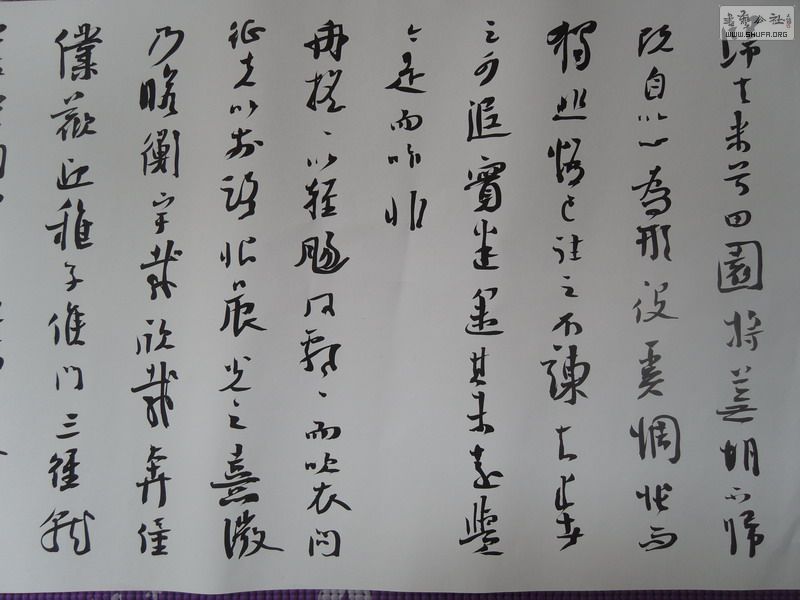 書藝公社
WWW.SHUFA.ORG
歸去来兮田園將蕪胡不歸
既自以心為形役奚惆悵而
獨悲悟已往之不諫知来者
之可追實迷途其未遠覺
今是而昨非
舟摇〻以輕颺風飄〻而吹衣問
征夫以前路恨晨光之熹微
乃瞻衡宇載欣載奔僮
僕歡迎稚子候門三徑就